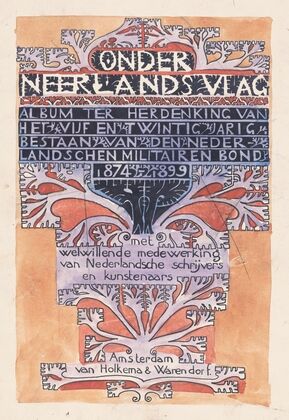 ONDER
NEERLANDS VLAG
ALBUM TER HERDENKING VAN
HET VIJF EN TWINTIG JARIG
BESTAAN VAN DEN NEDER-
LANDSCHEN MILITAIREN BOND
1874-1899
met
welwillende medewerking
van Nederlandsche schrijvers
en kunstenaars
Amsterdam
van Holkema & Warendorf.